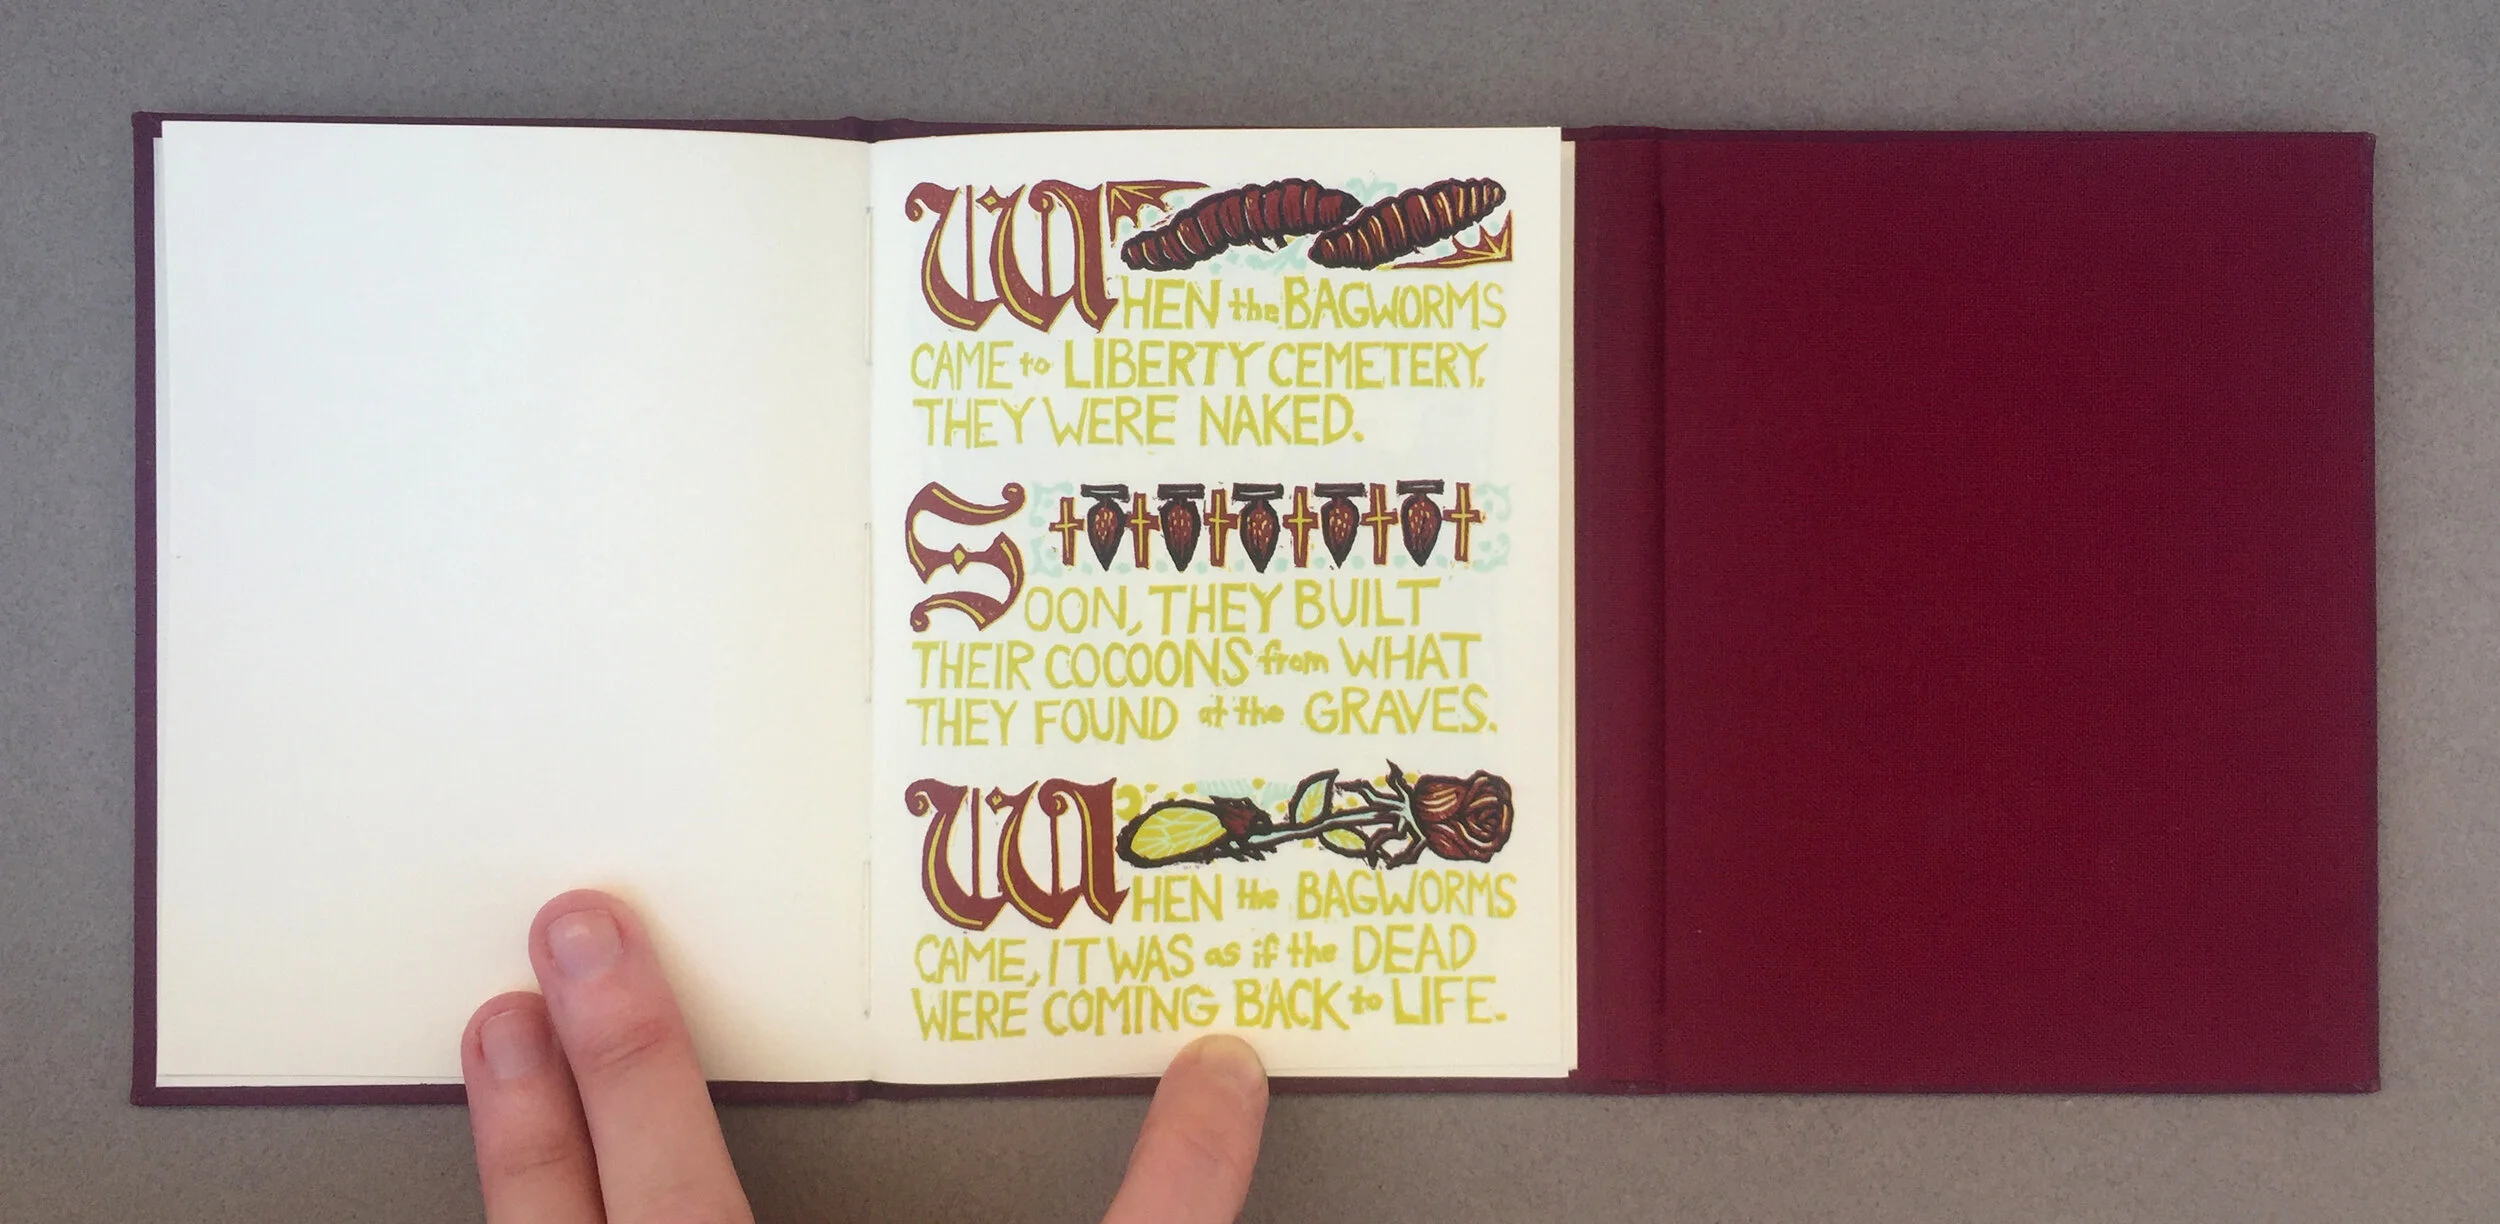 WHEN the BAGWORMS
CAME to LIBERTY CEMETERY,
THEY WERE NAKED.
SOON, THEY BUILT
THEIR COCOONS from WHAT
THEY FOUND at the GRAVES.
WHEN the BAGWORMS
CAME, IT WAS as if the DEAD
WERE COMING BACK to LIFE.